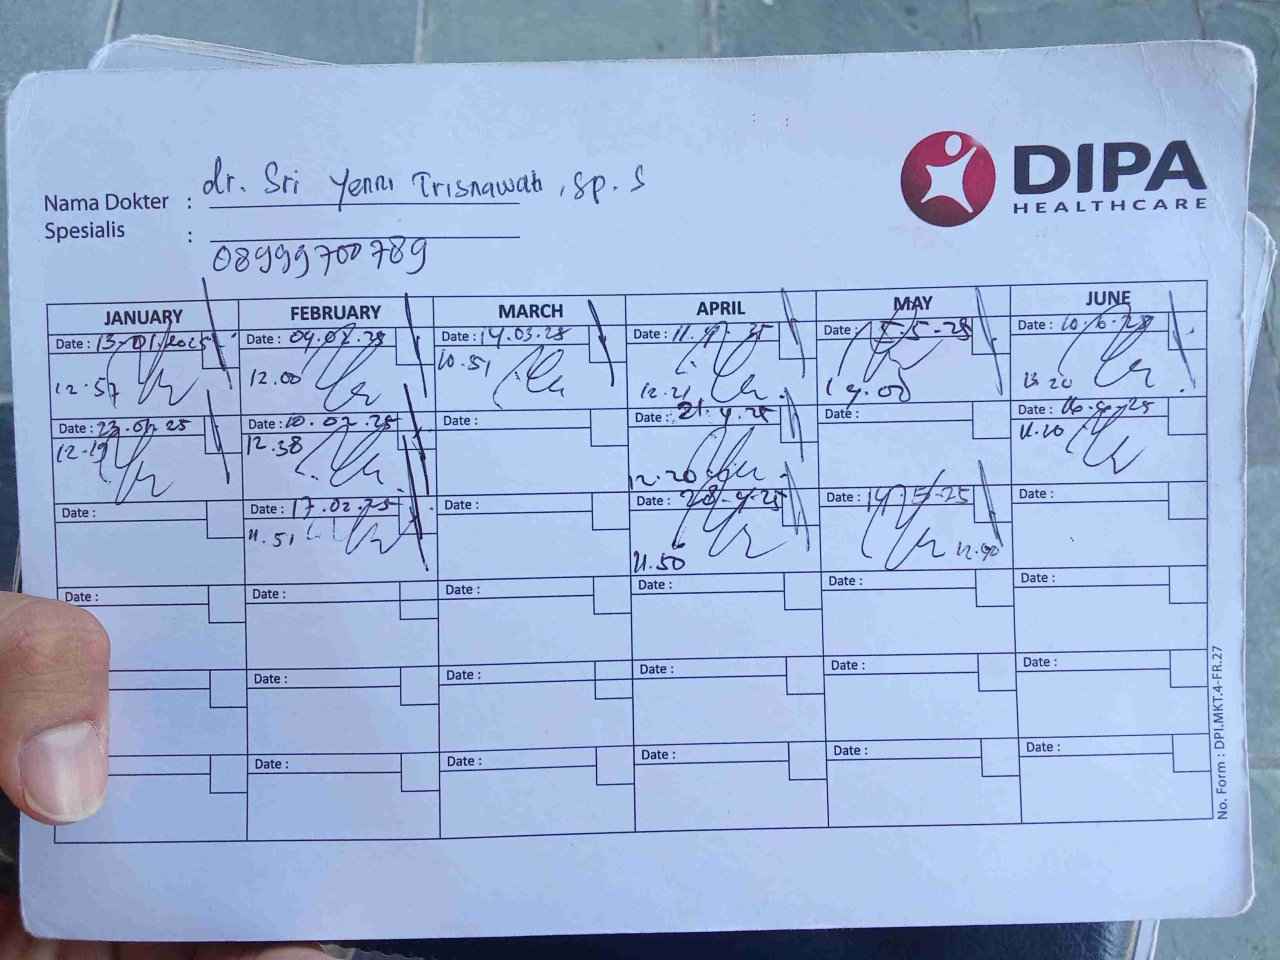 DIPA
HEALTHCARE
Nama Dokter : dr. Sri Yenni Trisnawati, Sp. S
Spesialis :
08999700789
JANUARY FEBRUARY MARCH APRIL MAY JUNE
Date : 13-01.2025 Date : 04.02.25 Date : 14.03.25 Date : 11.4.25 Date : 5-5-25 Date : 10.6.25
12.57 12.00 10.51 12.21 14.00 13.20
Date : 23.01.25 Date : 10.02.25 Date : Date : 21.4.25 Date : Date : 16.6.25
12.19 12.38 12.20 11.10
Date : Date : 17.02.25 Date : Date : 28-4-25 Date : 14.5-25 Date :
11.51 11.50
Date : Date : Date : Date : Date : Date :
Date : Date : Date : Date : Date :
Date : Date : Date : Date : Date :
No. Form : DPI.MKT.4-FR.27